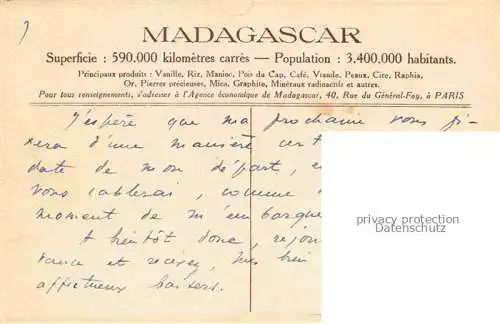 MADAGASCAR
Superficie : 590.000 kilomètres carrés — Population : 3.400.000 habitants.
Principaux produits : Vanille, Riz, Manioc, Pois du Cap, Café, Viande, Peaux, Cire, Raphia,
Or, Pierres précieuses, Mica, Graphite, Minéraux radioactifs et autres.
Pour tous renseignements, s'adresser à l'Agence économique de Madagascar, 40, Rue du Général-Foy, à PARIS
J'espère que ma prochaine vous fi-
xera d'une manière cert
date de mon départ, e
vous cablerai, comme
moment de m'embarque
A bientôt donc, rejou
tance et recevez, mes bien
affectueux baisers.
privacy protection